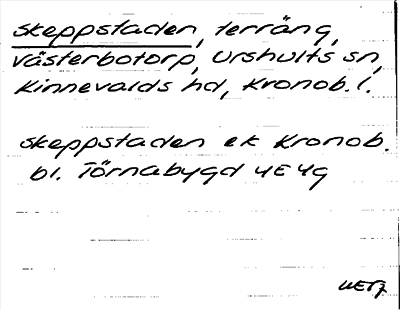 skeppstaden, terräng,
västerbotorp, Urshults sn,
Kinnevalds hd, Kronob. l.
skeppstaden ek Kronob.
bl. Törnabygd 4E4g